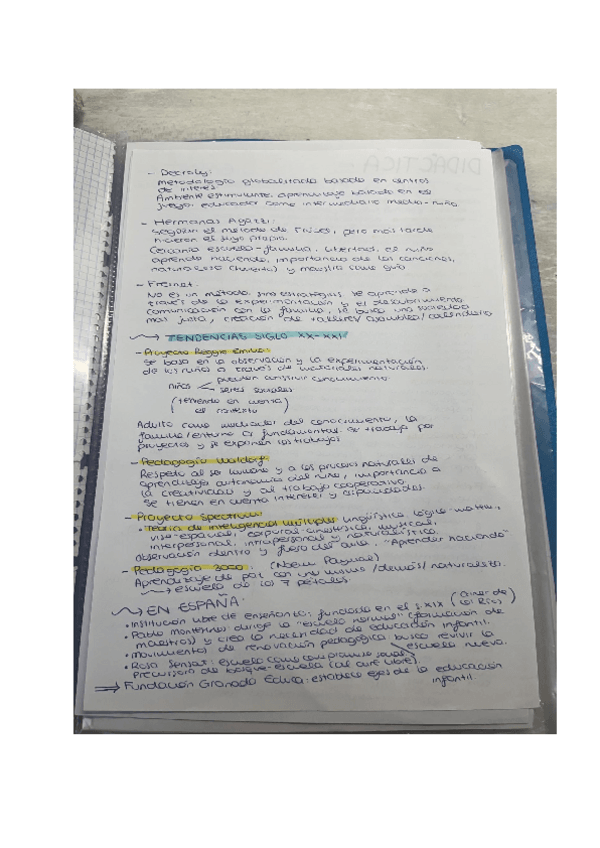 - Decroly:
Metodología globalizada basada en centros
de interés
Ambiente estimulante, aprendizaje basado en el
juego, educador como intermediario medio-niño.
- Hermanas Agazzi:
Seguían el método de Fröbel, pero más tarde
hicieron el suyo propio.
Cercanía escuela-familia, libertad, el niño
aprende haciendo, importancia de las canciones,
naturaleza (huerto) y maestra como guía
- Freinet
No es un método, sino estrategias. Se aprende a
través de la experimentación y el descubrimiento
comunicación con la familia, se busca una sociedad
más justa, creación de talleres/asambleas/calendario
TENDENCIAS SIGLO XX-XXI
- Proyecto Reggio Emilia:
Se basa en la observación y la experimentación
de los niños a través de materiales naturales.
pueden construir conocimiento
niños < seres sociales
(teniendo en cuenta
el contexto)
Adulto como mediador del conocimiento, la
familia/entorno es fundamental. Se trabaja por
proyectos y se exponen los trabajos
- Pedagogía Waldorf:
Respeto al ser humano y a los procesos naturales de
aprendizaje autónomo del niño, importancia a
la creatividad y al trabajo cooperativo.
Se tienen en cuenta intereses y capacidades.
- Proyecto Spectrum:
• Teoría de inteligencias múltiples lingüística, lógico-mat.,
viso-espacial, corporal-cinestésica, musical,
interpersonal, intrapersonal y naturalística.
Observación dentro y fuera del aula. "Aprender haciendo"
- Pedagogía 3000: (Noemi Paymal)
Aprendizaje de paz con uno mismo/demás/naturaleza.
→ escuela de los 7 pétalos.
EN ESPAÑA:
• Institución libre de enseñanza: fundada en el S.XIX (Giner de
los Ríos)
• Pablo Montesino dirige la "escuela normal" (formación de
maestros) y crea la necesidad de educación infantil.
• Movimientos de renovación pedagógica busca revivir la
escuela nueva.
• Rosa Sensat: escuela como compromiso social
Precursora de bosque-escuela (al aire libre).
⇒ Fundación Granada Educa: establece ejes de la educación
infantil.